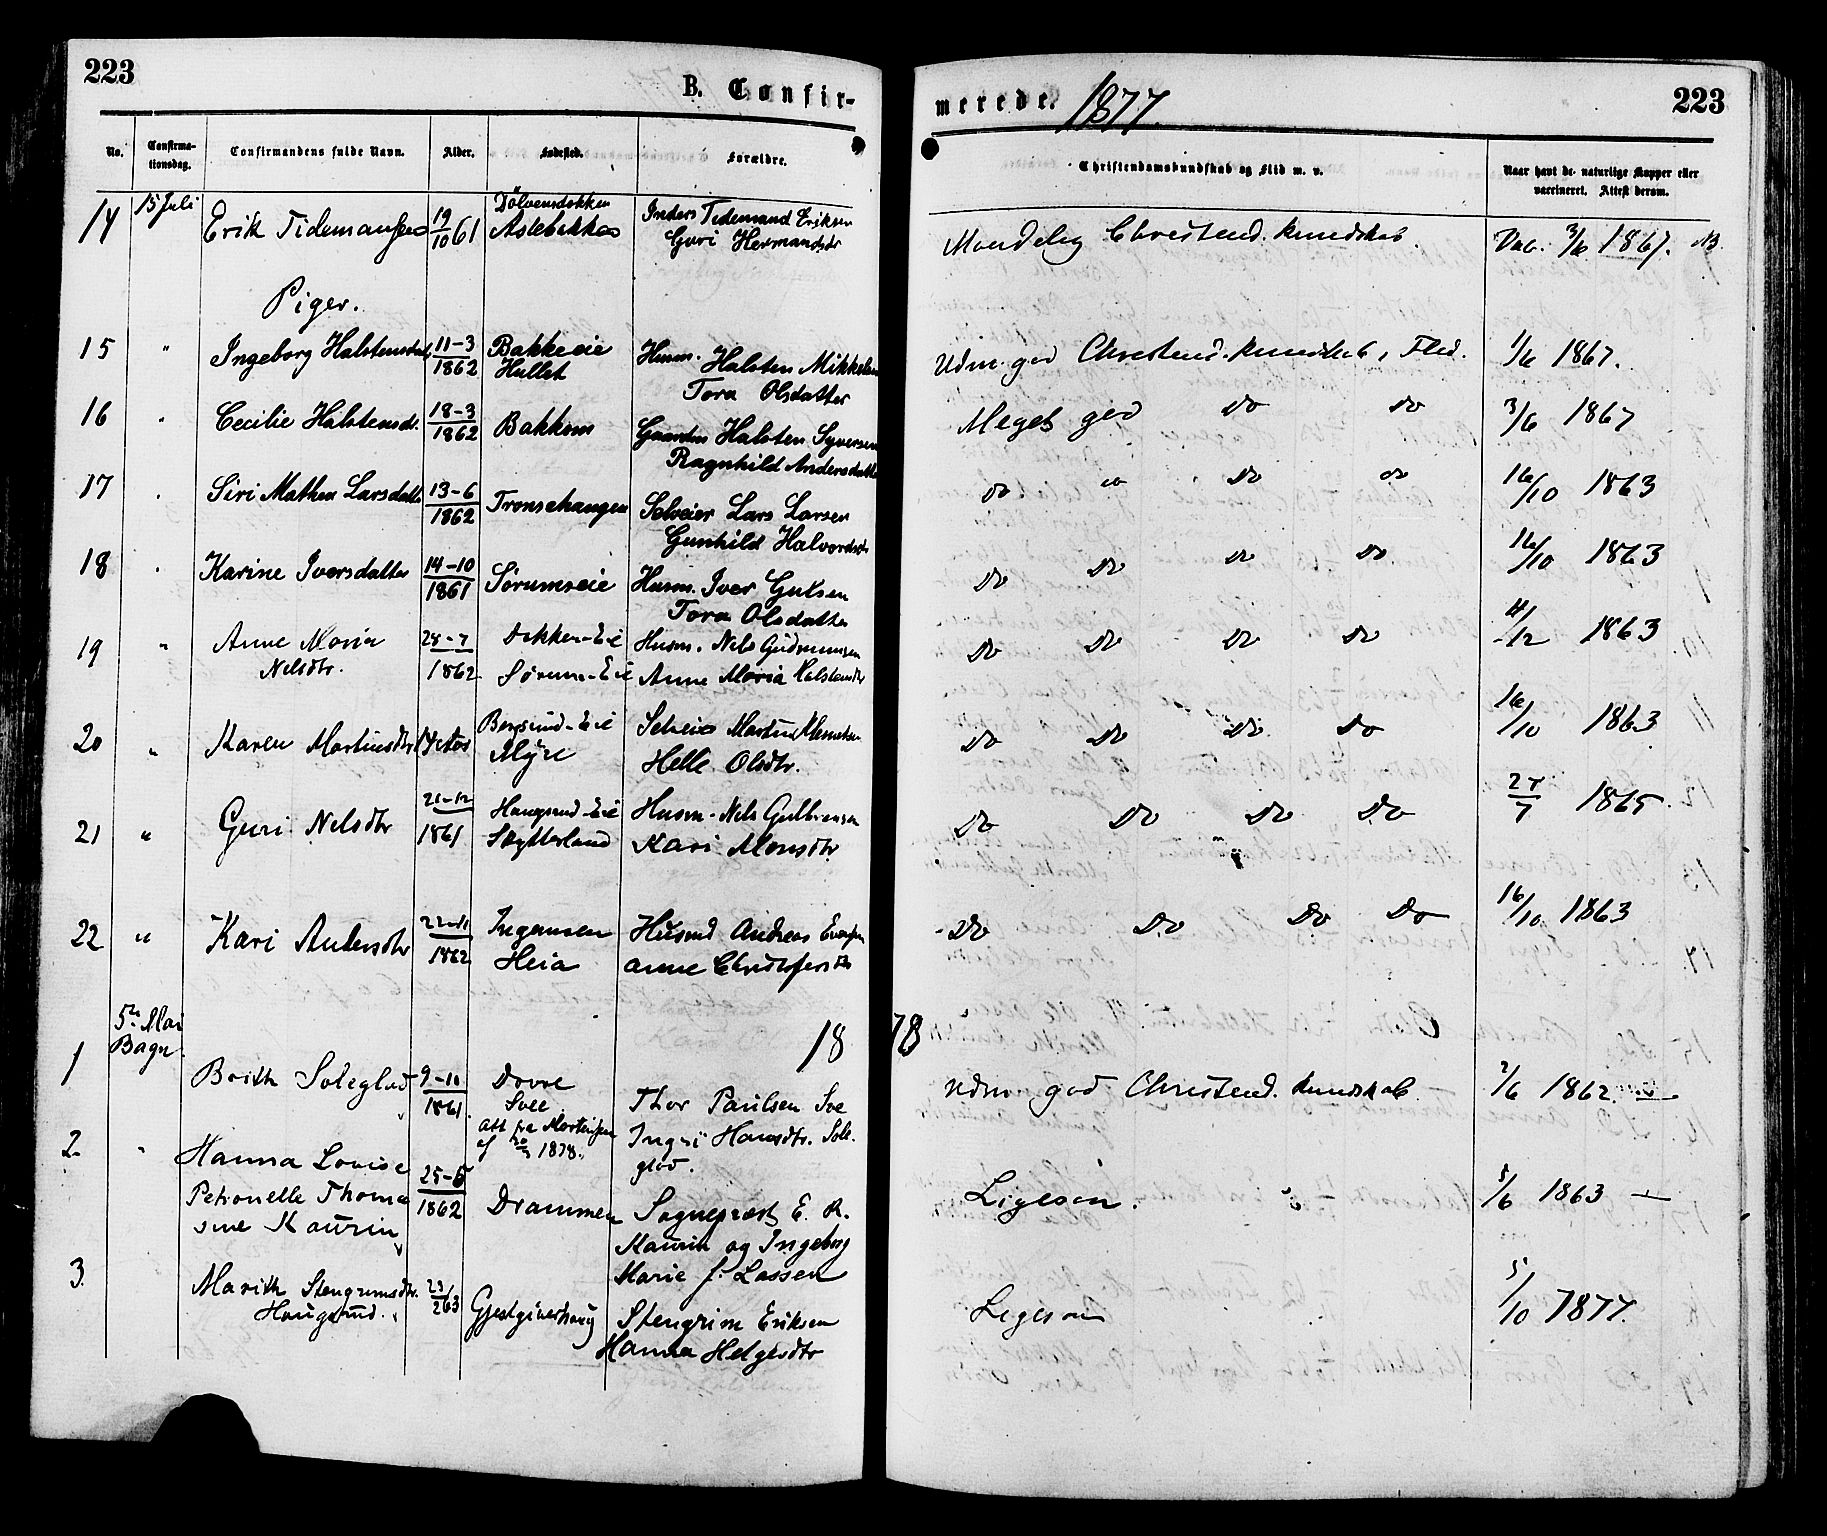 223
B. Confir-
No.
Confirma-
tionsdag.
Confirmandens fulde Navn.
Alder.
Fødested.
Forældre.
14 15 Juli Erik Tidemansen 19/10 61 Dölvensbakken
Aslebakken
Tidemand Eriksen
Guri Hermandsdr
Piger.
15 " Ingeborg Halstensdatt 11-3/1862 Bakkeeie
Hullet
Husm. Halsten Mikkelsen
Tora Olsdatter
16 " Cecilie Halstensdr. 18-3/1862 Bakkom Gaardm Halsten Syversen
Ragnhild Andersdatter
17 " Siri Mathea Larsdatter 13-6/1862 Tronsehaugen Selveier Lars Larsen
Gunhild Halvordsdr
18 " Karine Iversdatter 14-10/1861 Sørumseie Husm. Iver Gulsen
Tora Olsdatter
19 " Anne Maria
Nelsdtr.
28-7/1862 Dokken-Eie
Sørum-Eie
Husm. Nils Gudmunsen
Anne Maria Halstensdtr
20 " Karen Martinsdtr Bergsund-Eie
Myre
Selveier Martin Klemetsen
Helle Olsdtr.
21 " Guri Nelsdtr 21-12/1861 Haugsrud-Eie
Skytterland
Husm. Nels Gulbransen
Kari Monsdtr
22 " Kari Andersdtr 22-11/1862 Ingemsen
Heia
Husmd Andreas
Anne Christofersdtr
1878
5te Mai
Bagn.
1 Brith Soleglad 9-11/1861 Dovre
Svee
Att fra Mortensen
af 1878.
Thor Paulsen Sve
Ingri Hansdtr. Sole-
glad.
2 " Hanna Lovise
Petronelle Thoma
sine Kaurin
25-5/1862 Drammen Sognepræst E. R.
Kaurin og Ingeborg
Marie f. Lassen
3. Marith Stengrimsdtr.
Haugsrud.
23/2 63 Gjestgiverhaug Stengrim Eriksen
Hanna Helgesdtr
merede. 1877.
223
Christendomskundskab og Flid m. v.
Naar havt de naturlige Kopper eller
vaccineret. Attest derom.
Maadelig Christend. kundskab. Vac. 3/6 1867. NB.
Udm. god Christend. kundskab, Flid. 1/6 1867.
Meget god Do Do 3/6 1867
Do Do Do 16/10 1863
Do Do Do Do 16/10 1863
Do Do Do Do 4/12 1863
Do Do Do Do 16/10 1863
Do Do Do Do 27/7 1865.
Do Do Do Do 16/10 1863
Udm god Christend. kundskab. 2/6 1862
Ligesaa. 5/6 1863 —
Ligesaa 5/10 1877.